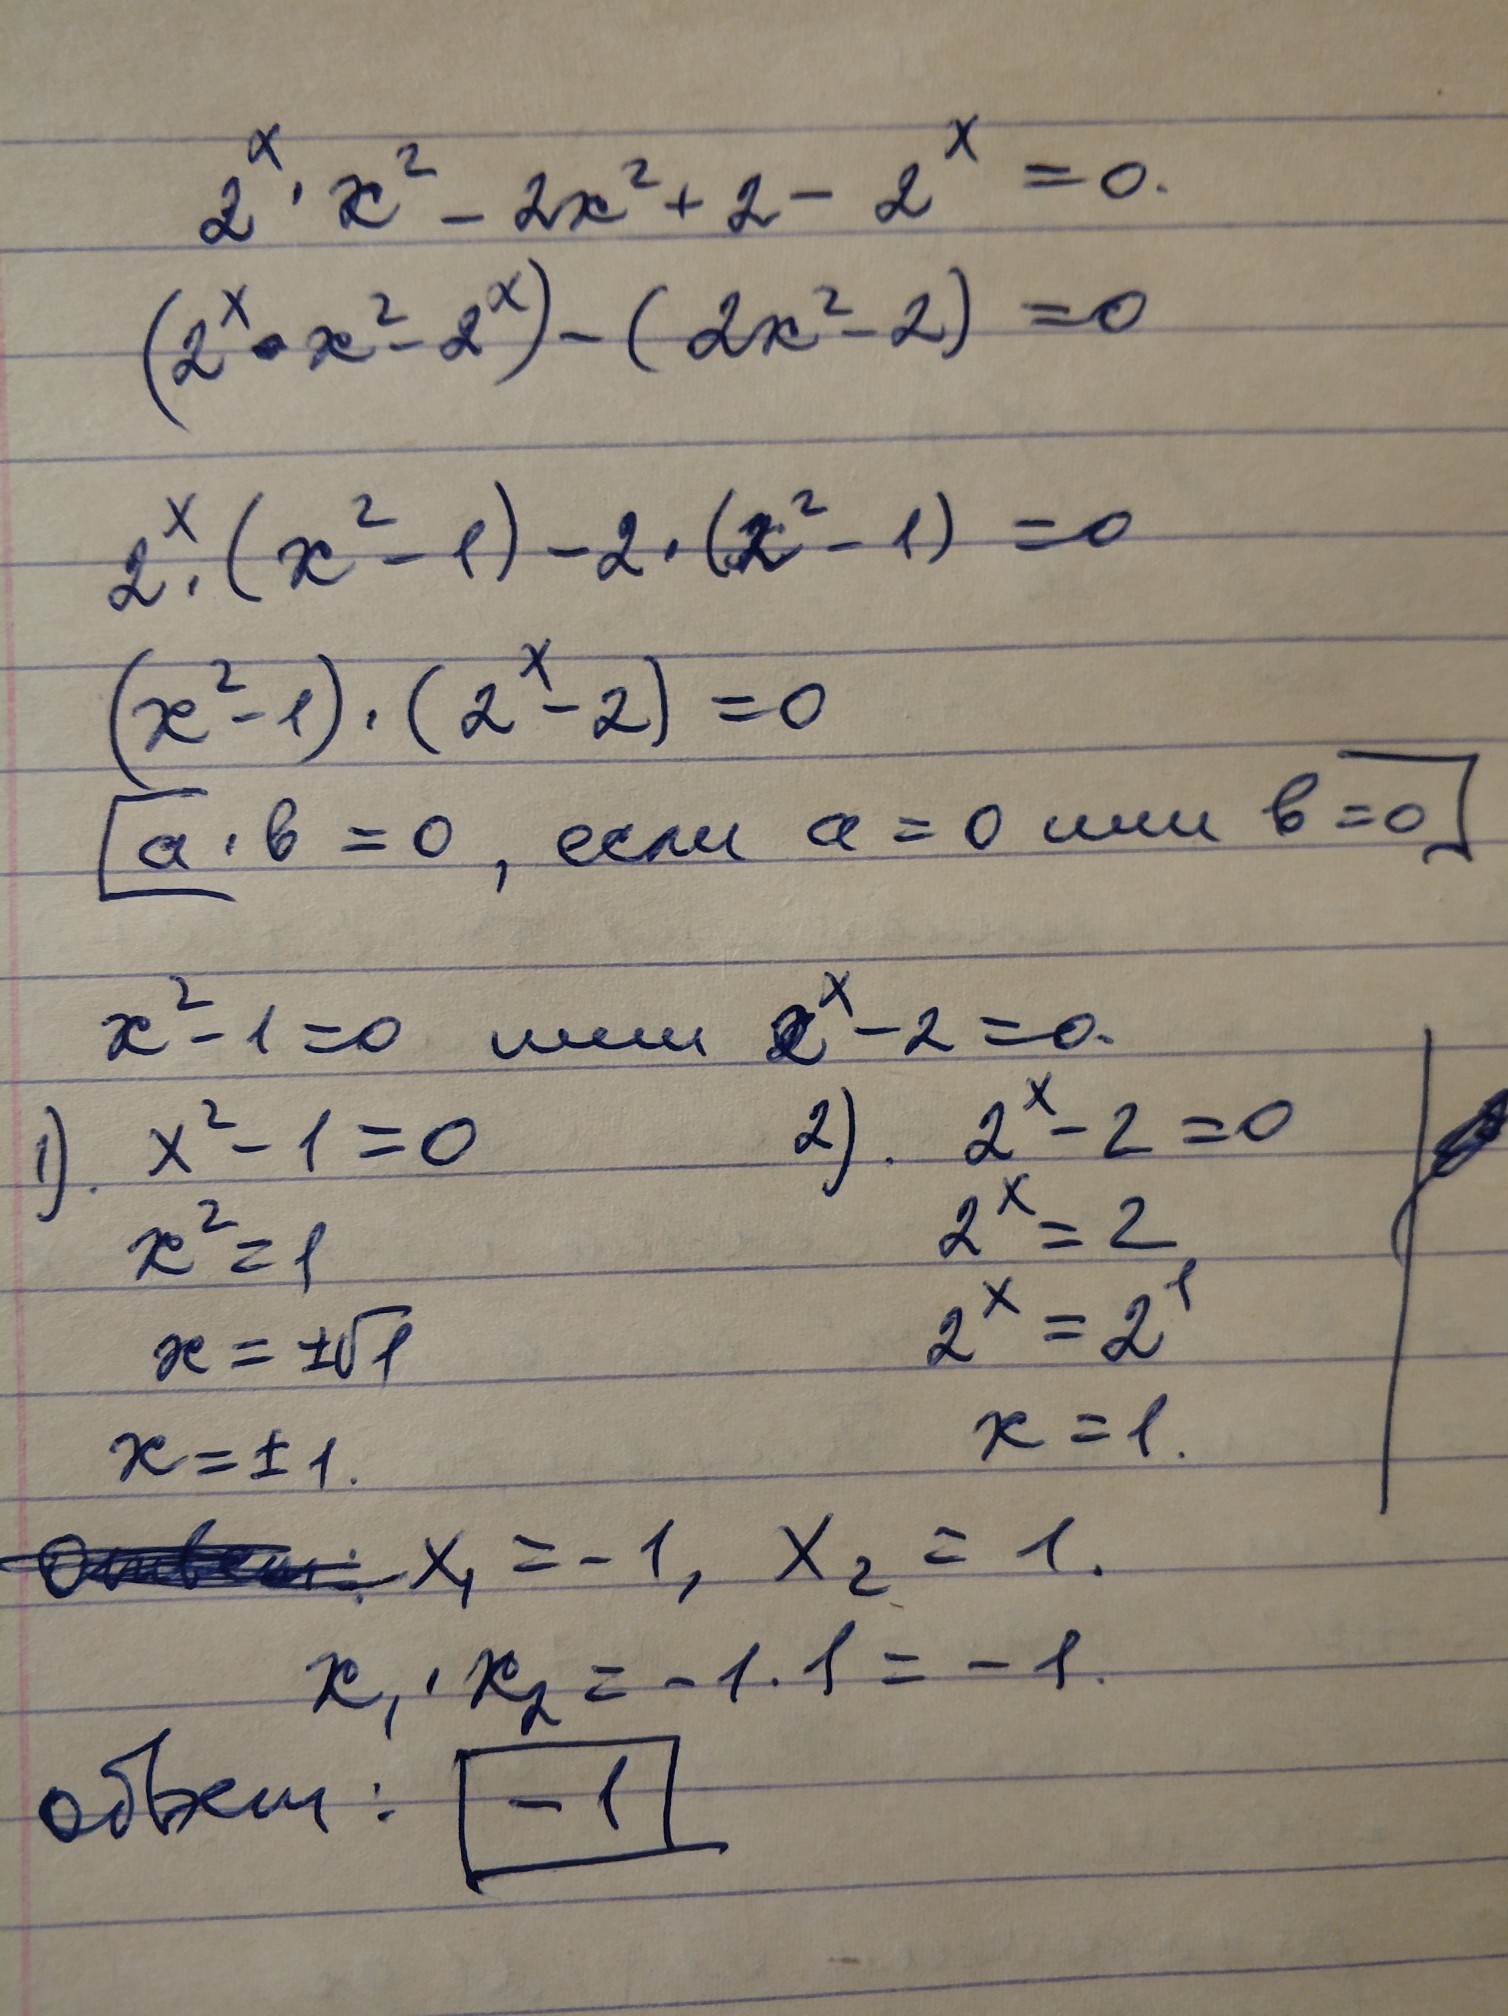 2^x · x² - 2x² + 2 - 2^x = 0.
(2^x · x² - 2^x) - (2x² - 2) = 0
2^x · (x² - 1) - 2 · (x² - 1) = 0
(x² - 1) · (2^x - 2) = 0
a · b = 0, если a = 0 или b = 0
x² - 1 = 0 или 2^x - 2 = 0.
1). x² - 1 = 0 2). 2^x - 2 = 0
x² = 1 2^x = 2
x = ±√1 2^x = 2^1
x = ±1. x = 1.
x₁ = -1, x₂ = 1.
x₁ · x₂ = -1 · 1 = -1.
ответ: -1